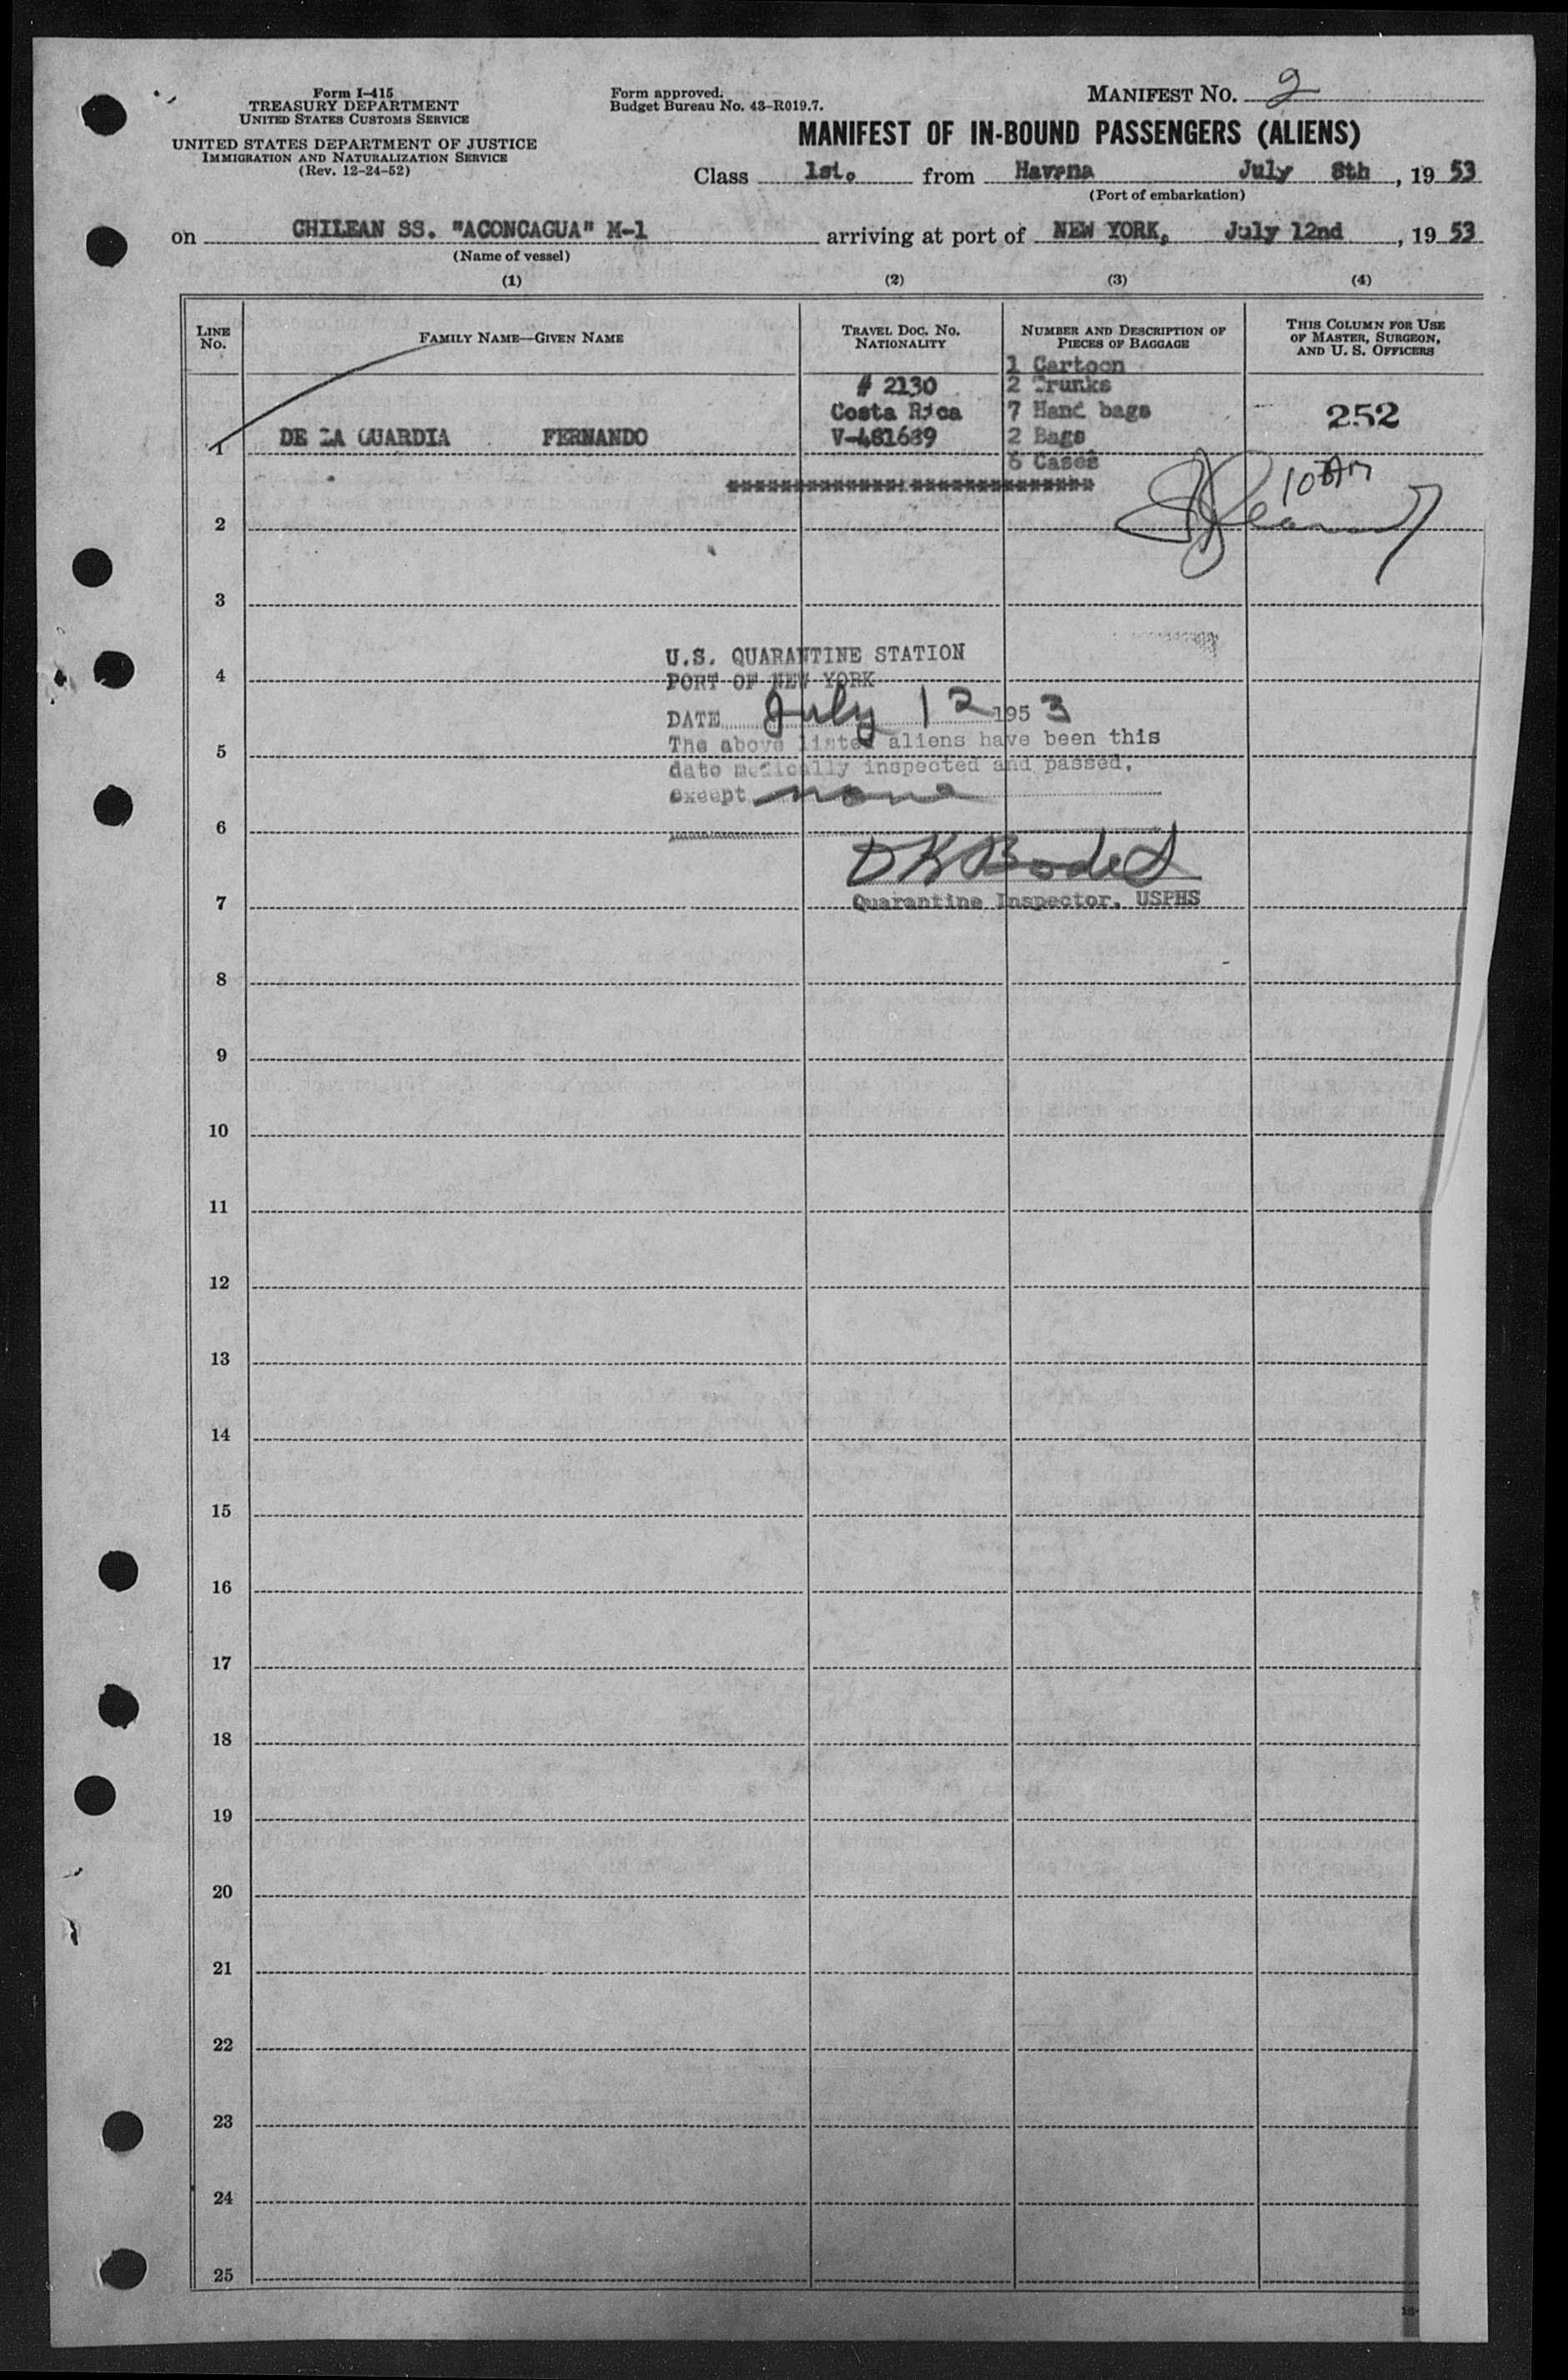 Form I-415
TREASURY DEPARTMENT
UNITED STATES CUSTOMS SERVICE
UNITED STATES DEPARTMENT OF JUSTICE
IMMIGRATION AND NATURALIZATION SERVICE
(Rev. 12-24-52)
Form approved.
Budget Bureau No. 43-R019.7.
MANIFEST NO. 2
MANIFEST OF IN-BOUND PASSENGERS (ALIENS)
Class 1st. from Havana July 8th, 19 53
(Port of embarkation)
on CHILEAN SS. "ACONCAGUA" M-1 arriving at port of NEW YORK, July 12nd, 19 53
(Name of vessel)
(1) (2) (3) (4)
LINE NO.
FAMILY NAME—GIVEN NAME
TRAVEL DOC. NO.
NATIONALITY
NUMBER AND DESCRIPTION OF
PIECES OF BAGGAGE
THIS COLUMN FOR USE
OF MASTER, SURGEON,
AND U. S. OFFICERS
1 Cartoon
# 2130 2 Trunks
Costa Rica 7 Hand bags 252
1 DE LA GUARDIA FERNANDO V-481689 2 Bags
6 Cases
10 AM
2
3
U.S. QUARANTINE STATION
4
PORT OF NEW YORK
DATE July 12 1953
The above listed aliens have been this
5
date medically inspected and passed,
except none
6
D K Bodet
7
Quarantine Inspector, USPHS
8
9
10
11
12
13
14
15
16
17
18
19
20
21
22
23
24
25
16-